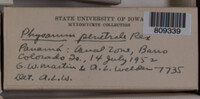 STATE UNIVERSITY OF IOWA
MYXOMYCETE COLLECTION
809339
Physarum penetrale Rex
Panamá: Canal Zone, Barro
Colorado Is., 14 July 1952
G. W. Martin & A. L. Welden 7735
Det. A.L.W.